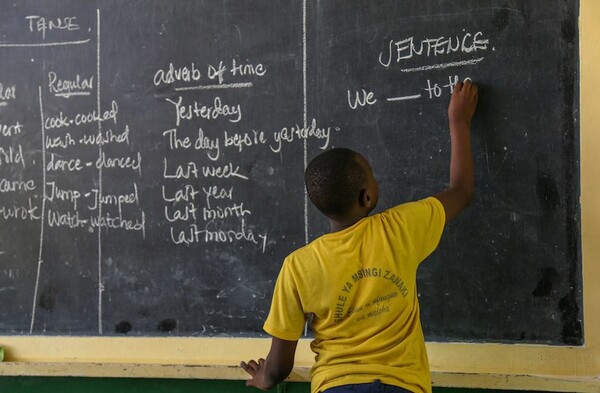 TENSE.
Regular
cook-cooked
wash-washed
dance-danced
Jump-Jumped
Watch-watched
adverb of time
Yesterday
The day before yesterday.
Last week
Last year
Last month
Last monday
SENTENCE.
We ___ to
SHULE YA MSINGI ZANAKI